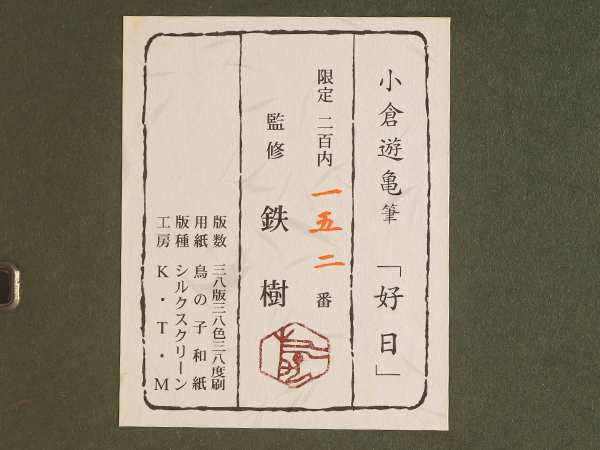 小倉遊亀筆「好日」
限定 二百内 一五二 番
監修 鉄樹
版数 三八版三八色三八度刷
用紙 鳥の子和紙
版種 シルクスクリーン
工房 K・T・M